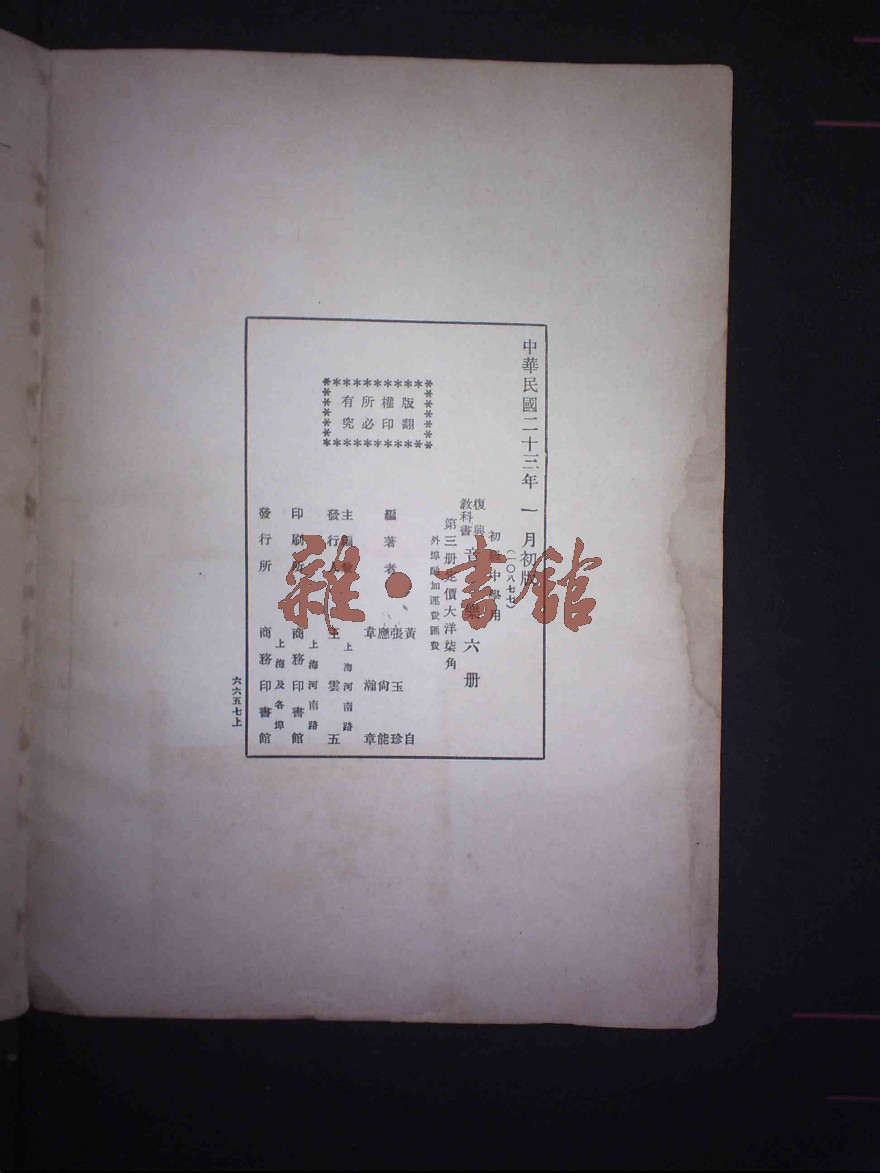 中華民國二十三年一月初版
(一〇八七七)
初級中學用
復興
教科書
音樂六册
第三册定價大洋柒角
外埠酌加運費匯費
版權所有
翻印必究
編著者
黃自
張玉珍
應尙能
韋瀚章
主編兼
發行人
王雲五
上海河南路
印刷所
商務印書館
上海河南路
發行所
商務印書館
上海及各埠
六六五七上
雜·書館